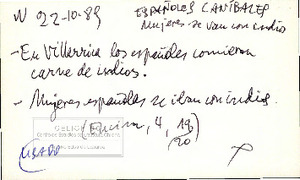 N 22-10-89
ESPAÑOLES CANÍBALES
Mujeres se van con indio
- En Villarrica los españoles comieron
carne de indios.
- Mujeres españolas se iban con indios.
(Encina, 4, 19
20)
USADO